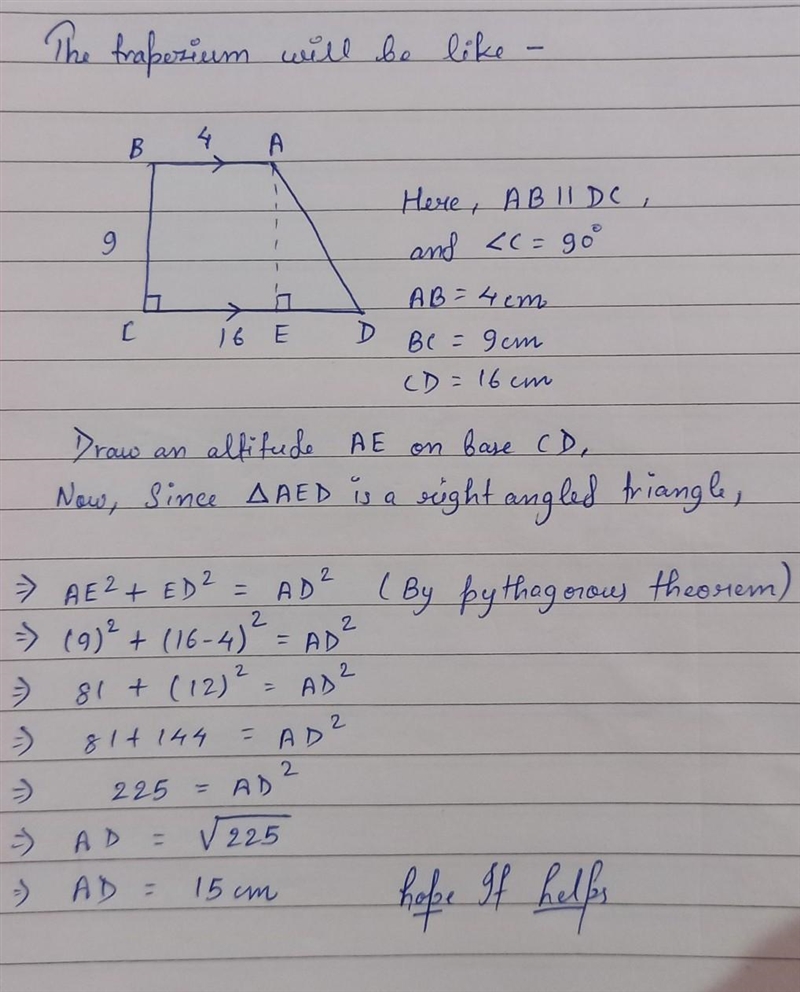 The trapezium will be like -
B 4 A
9
C 16 E D
Here, AB || DC,
and ∠C = 90°
AB = 4cm
BC = 9cm
CD = 16cm
Draw an altitude AE on base CD,
Now, Since △AED is a right angled triangle,
⇒ AE² + ED² = AD² (By pythagorous theorem)
⇒ (9)² + (16-4)² = AD²
⇒ 81 + (12)² = AD²
⇒ 81 + 144 = AD²
⇒ 225 = AD²
⇒ AD = √225
⇒ AD = 15cm
hope It helps